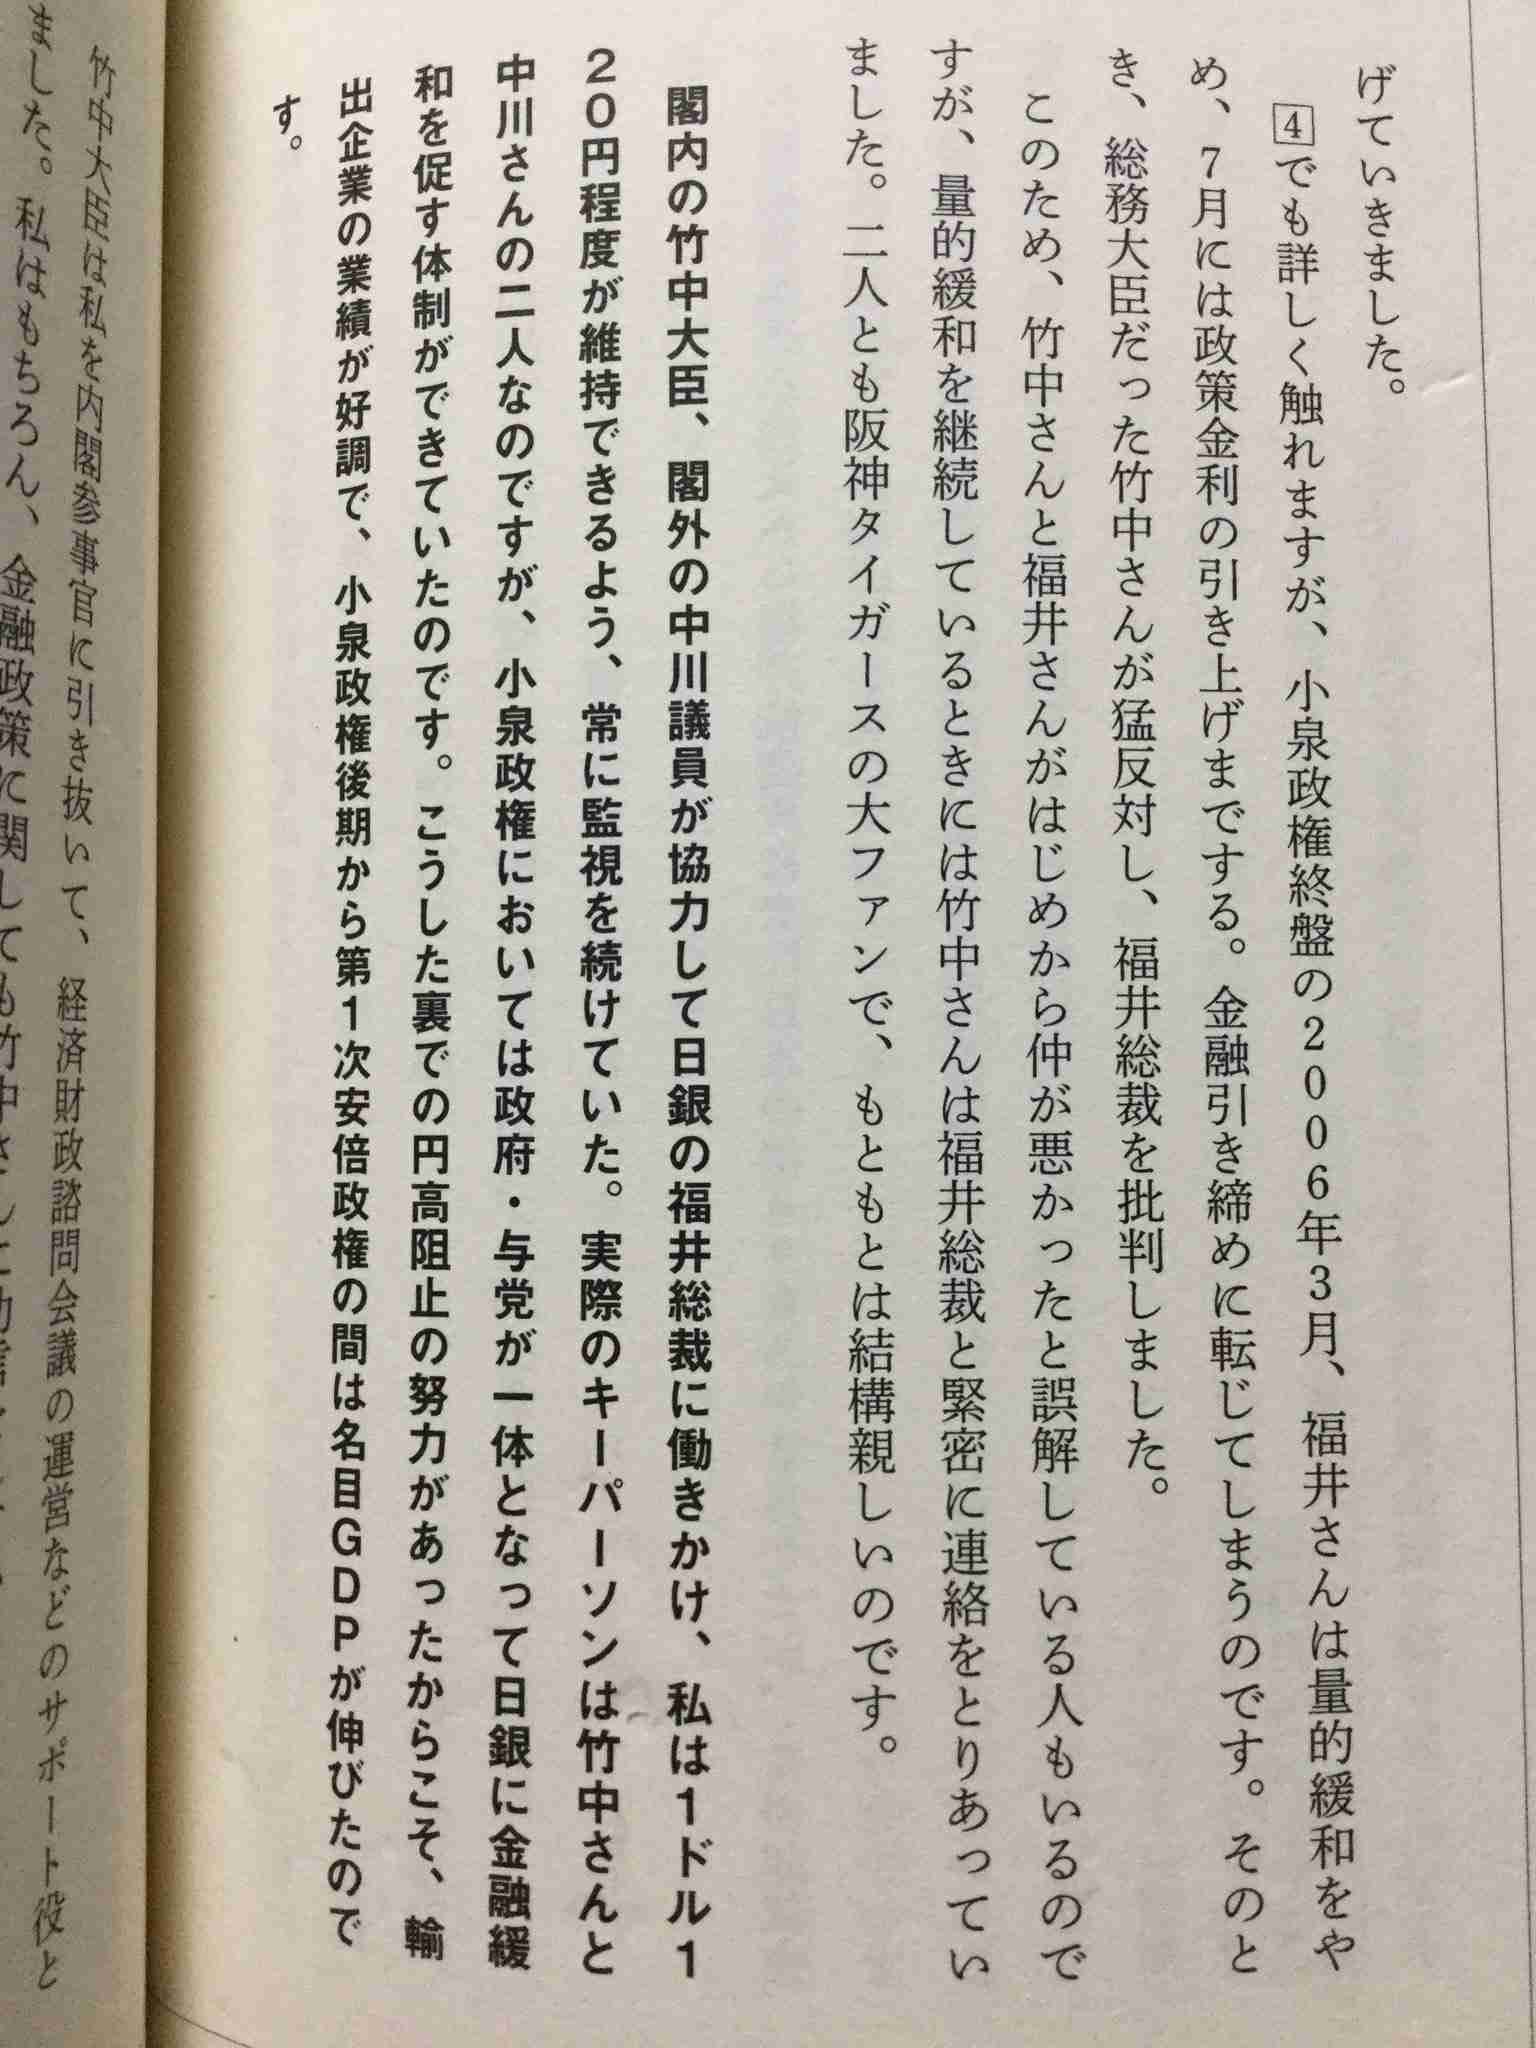 げていきました。
4でも詳しく触れますが、小泉政権終盤の2006年3月、福井さんは量的緩和をや
め、7月には政策金利の引き上げまでする。金融引き締めに転じてしまうのです。そのと
き、総務大臣だった竹中さんが猛反対し、福井総裁を批判しました。
このため、竹中さんと福井さんがはじめから仲が悪かったと誤解している人もいるので
すが、量的緩和を継続しているときには竹中さんは福井総裁と緊密に連絡をとりあってい
ました。二人とも阪神タイガースの大ファンで、もともとは結構親しいのです。
閣内の竹中大臣、閣外の中川議員が協力して日銀の福井総裁に働きかけ、私は1ドル1
20円程度が維持できるよう、常に監視を続けていた。実際のキーパーソンは竹中さんと
中川さんの二人なのですが、小泉政権においては政府・与党が一体となって日銀に金融緩
和を促す体制ができていたのです。こうした裏での円高阻止の努力があったからこそ、輸
出企業の業績が好調で、小泉政権後期から第1次安倍政権の間は名目GDPが伸びたので
す。
竹中大臣は私を内閣参事官に引き抜いて、経済財政諮問会議の運営などのサポート役と
ました。私はもちろん、金融政策に関しても竹中さんに